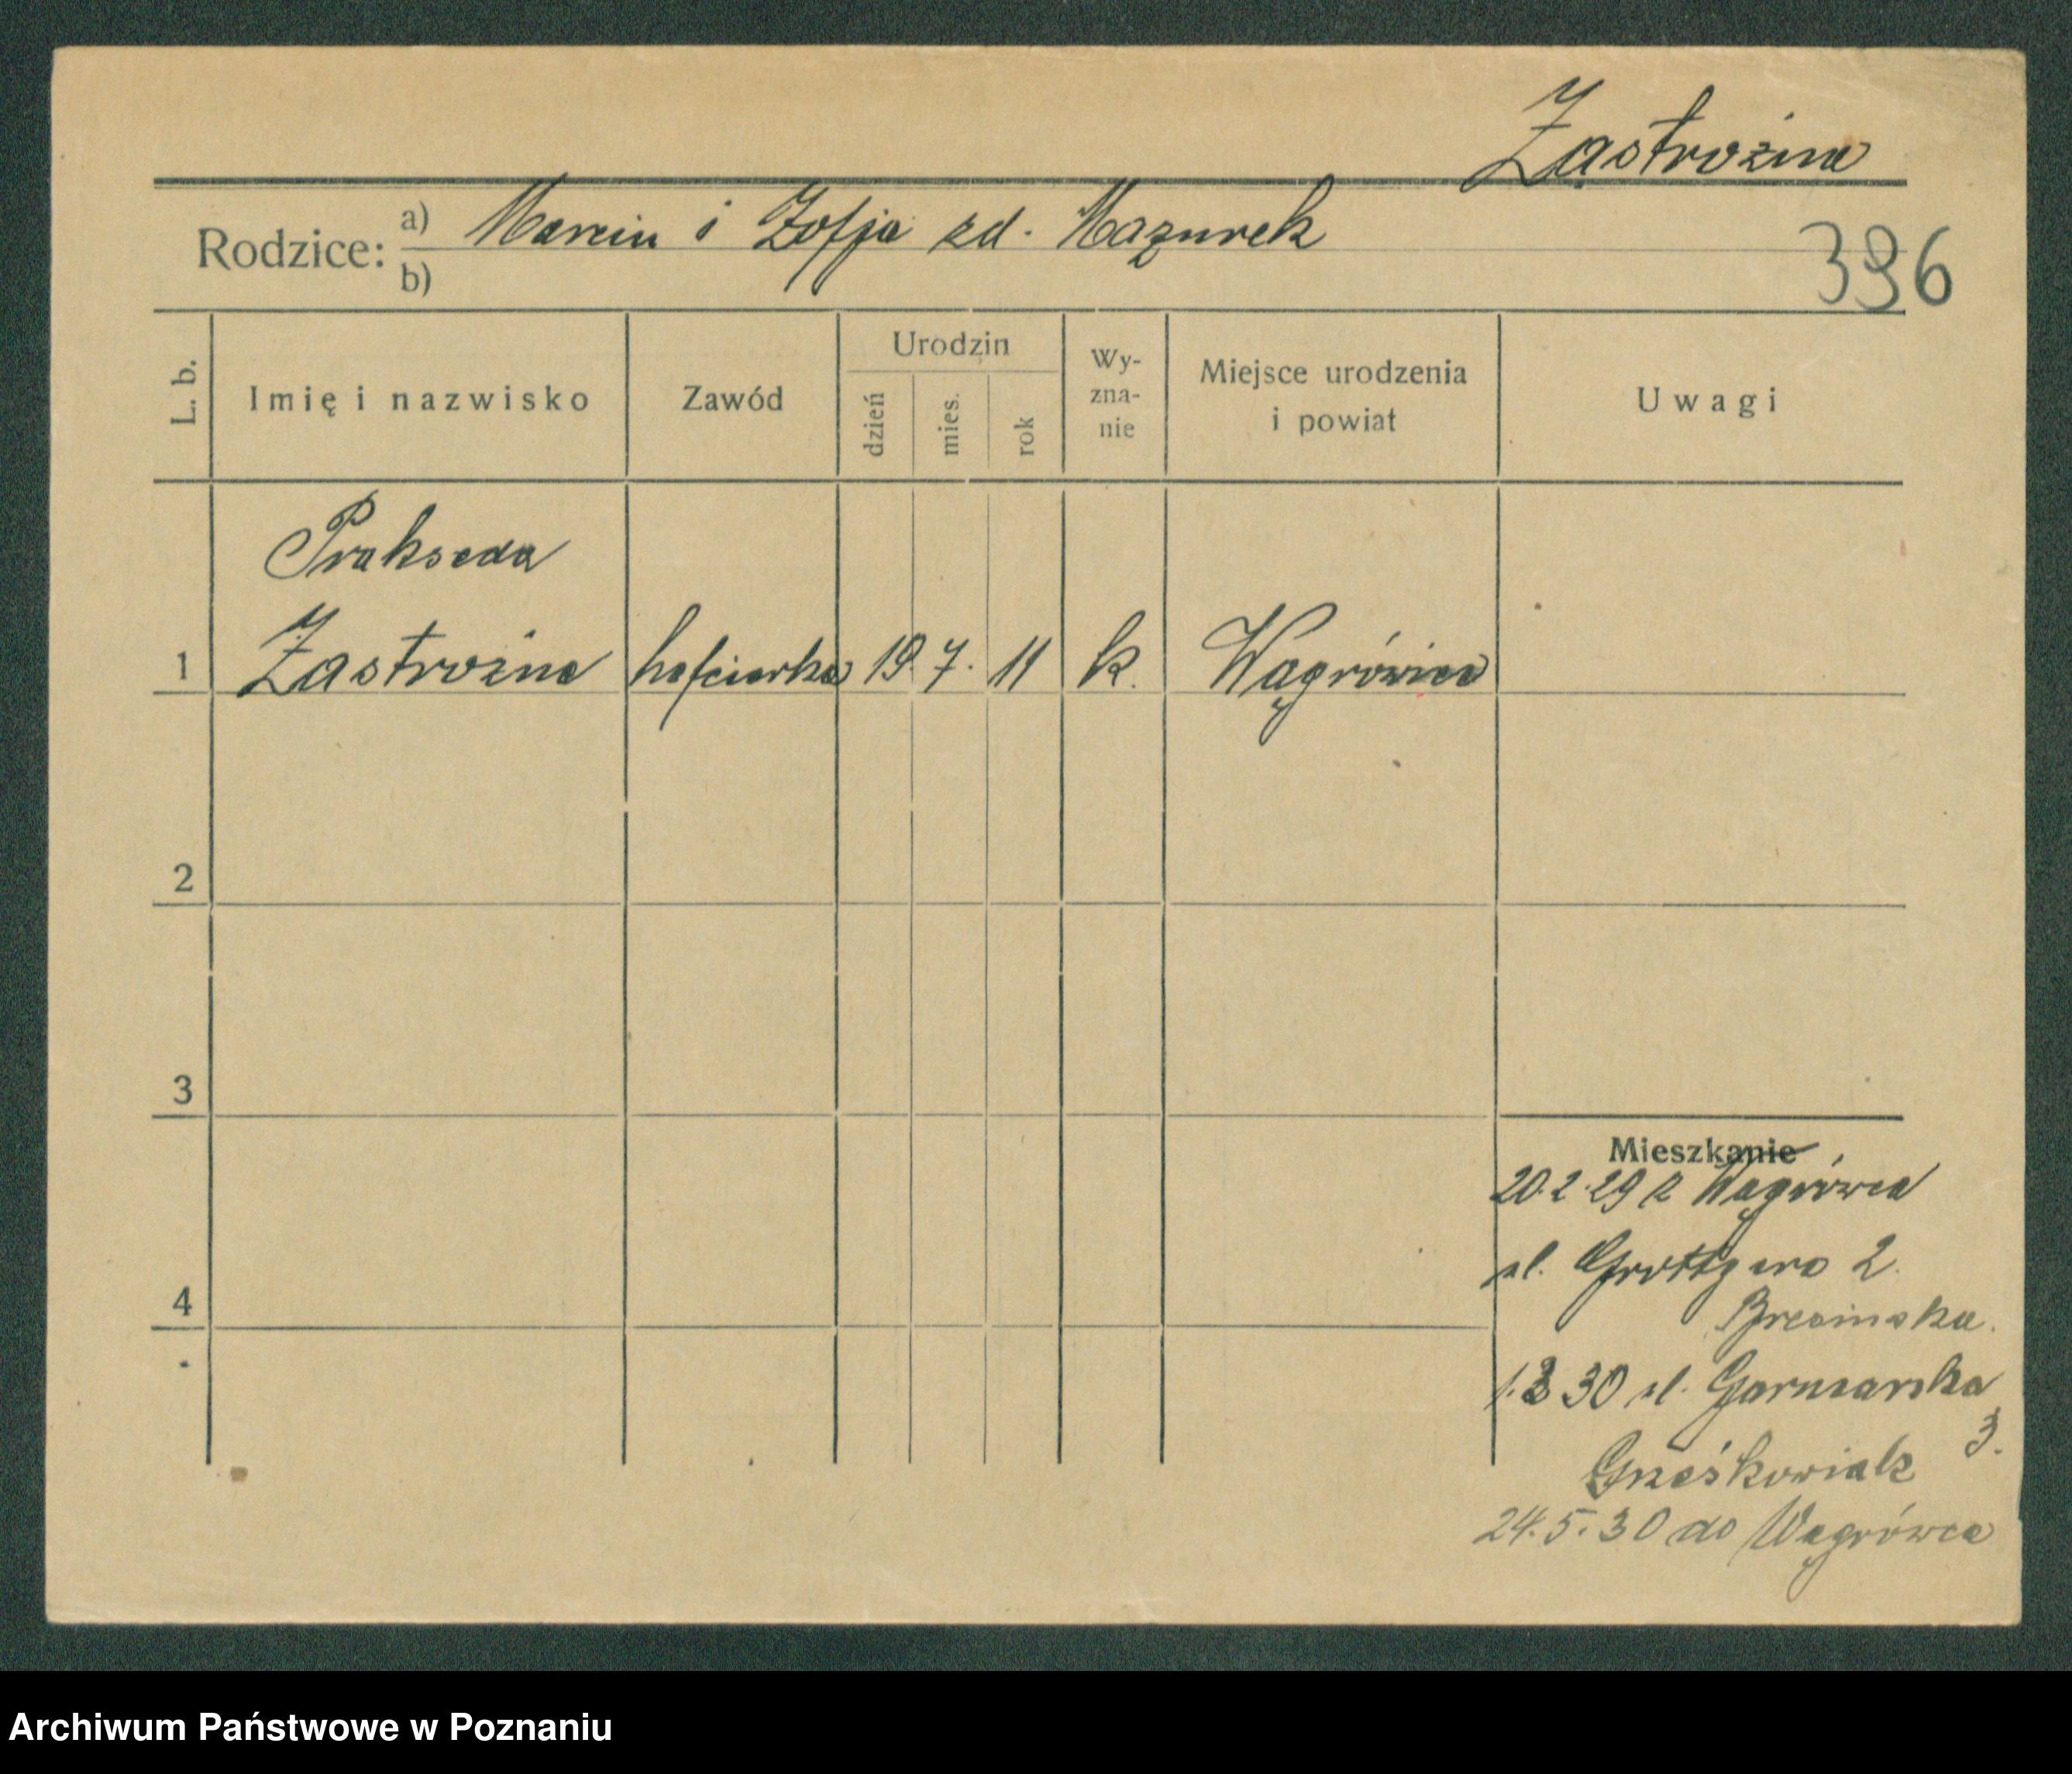 Zastrożna
Rodzice: a) Marcin i Zofja zd. Mazurek
b)
396
L. b.
Imię i nazwisko
Zawód
Urodzin
dzień
mies.
rok
Wy-
zna-
nie
Miejsce urodzenia
i powiat
Uwagi
Prakseda
1 Zastrożna hafciarka 19. 7. 11 k. Wągrówiec
2
3
Mieszkanie
20.2.29 z Wągrówca
ul. Grottgera 2.
4
30 ul. Garncarska
3.
Grześkowiak
24.5.30 do Wągrówca
Archiwum Państwowe w Poznaniu